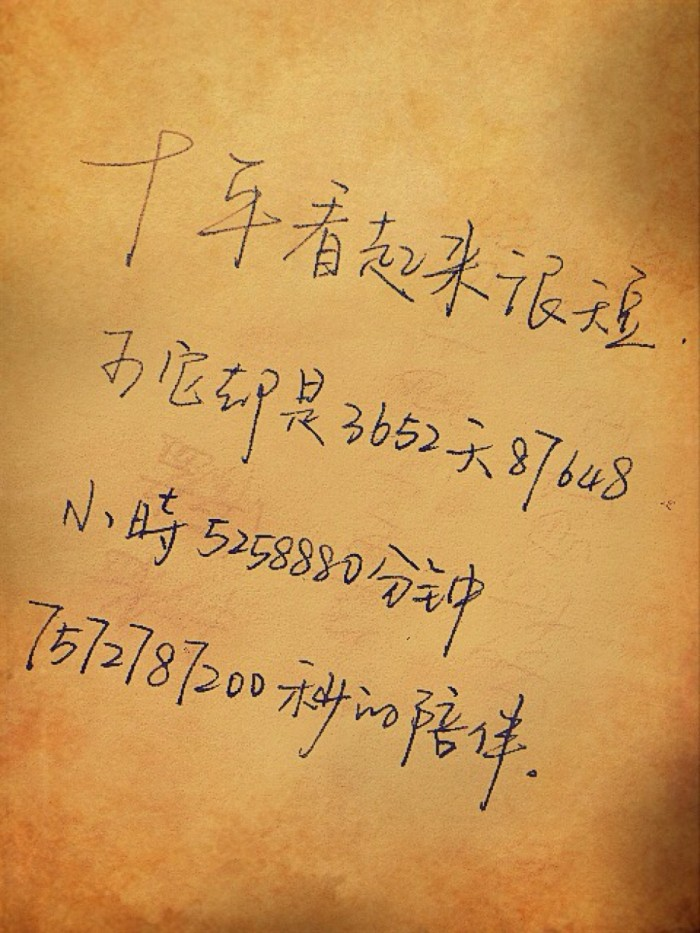 十年看起来很短.
可它却是3652天87648
小時5258880分钟
7572787200秒的陪伴。